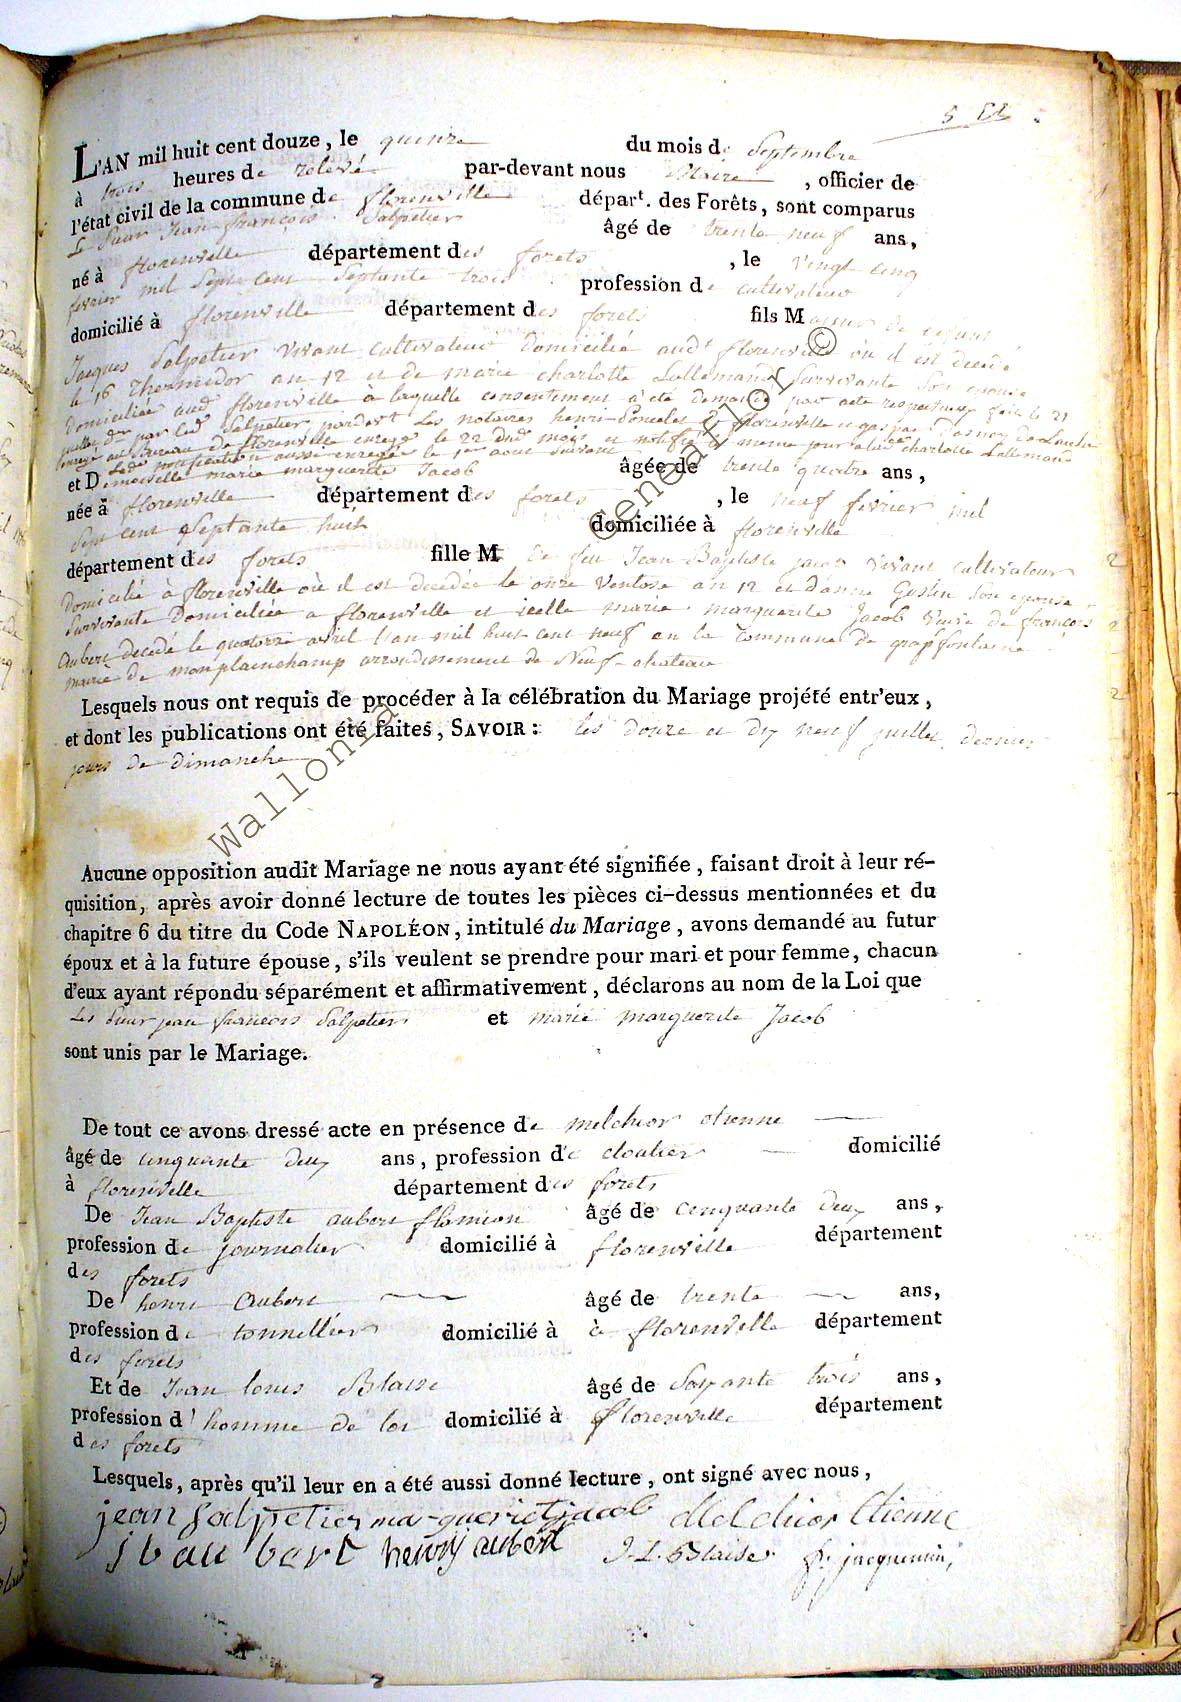 L'AN mil huit cent douze, le quinze du mois de Septembre
à trois heures de relevé par-devant nous Maire, officier de
l'état civil de la commune de florenville dépar.t des Forêts, sont comparus
Le Sieur Jean françois Salpetier âgé de trente neuf ans,
né à florenville département des forets, le vingt cinq
fevrier mil Sept cent Septante trois profession de cultivateur
domicilié à florenville département des forets fils M
Jacques Salpetier vivant cultivateur Domicilié aud.t florenville où il est decedé
le 16 Thermidor an 12 et de marie charlotte Lallemand Survivante Son epouse
Domiciliée aud florenville à laquelle consentement a été demandé par acte respectueux fait le 21
juillet d.er par led Salpetier pardevt Les notaires henri florenville et
au Bureau de florenville le 22 dud mois et notifié le meme jour a lad charlotte Lallemand
Lad notification aussi le 1er aout Suivant
et Demoiselle marie marguerite Jacob âgée de trente quatre ans,
née à florenville département des forets, le neuf fevrier mil
Sept cent Septante huit domiciliée à florenville
département des forets fille M De feu Jean Baptiste jacob vivant cultivateur
Domicilié à florenville où il est decedée le onze Ventose an 12 et d'anne Goslin Son epouse
Survivante Domiciliée a florenville et icelle marie marguerite Jacob Veuve de françois
Aubert decedé le quatorze avril l'an mil huit cent neuf en la commune de grapfontaine
mairie de monplainchamp arrondissement de Neuf-chateau
Lesquels nous ont requis de procéder à la célébration du Mariage projété entr'eux,
et dont les publications ont été faites, SAVOIR : les douze et dix neuf juillet dernier
jours de dimanche
Aucune opposition audit Mariage ne nous ayant été signifiée, faisant droit à leur ré-
quisition, après avoir donné lecture de toutes les pièces ci-dessus mentionnées et du
chapitre 6 du titre du Code NAPOLÉON, intitulé du Mariage, avons demandé au futur
époux et à la future épouse, s'ils veulent se prendre pour mari et pour femme, chacun
d'eux ayant répondu séparément et affirmativement, déclarons au nom de la Loi que
Les Sieur jean françois Salpetier et marie marguerite Jacob
sont unis par le Mariage.
De tout ce avons dressé acte en présence de melchior etienne
âgé de cinquante deux ans, profession de cloutier domicilié
à florenville département des forets
De Jean Baptiste aubert flamion âgé de cinquante deux ans,
profession de journalier domicilié à florenville département
des forets
De henri Aubert âgé de trente ans,
profession de tonnellier domicilié à à florenville département
des forets
Et de Jean louis Blaise âgé de Soixante trois ans,
profession d'homme de loi domicilié à florenville département
des forets
Lesquels, après qu'il leur en a été aussi donné lecture, ont signé avec nous,
jean Salpetier marguerite jacob Melchior Etienne
j b aubert henry aubert J. L. Blaise jacquemin
Wallonia Geneaflor ©